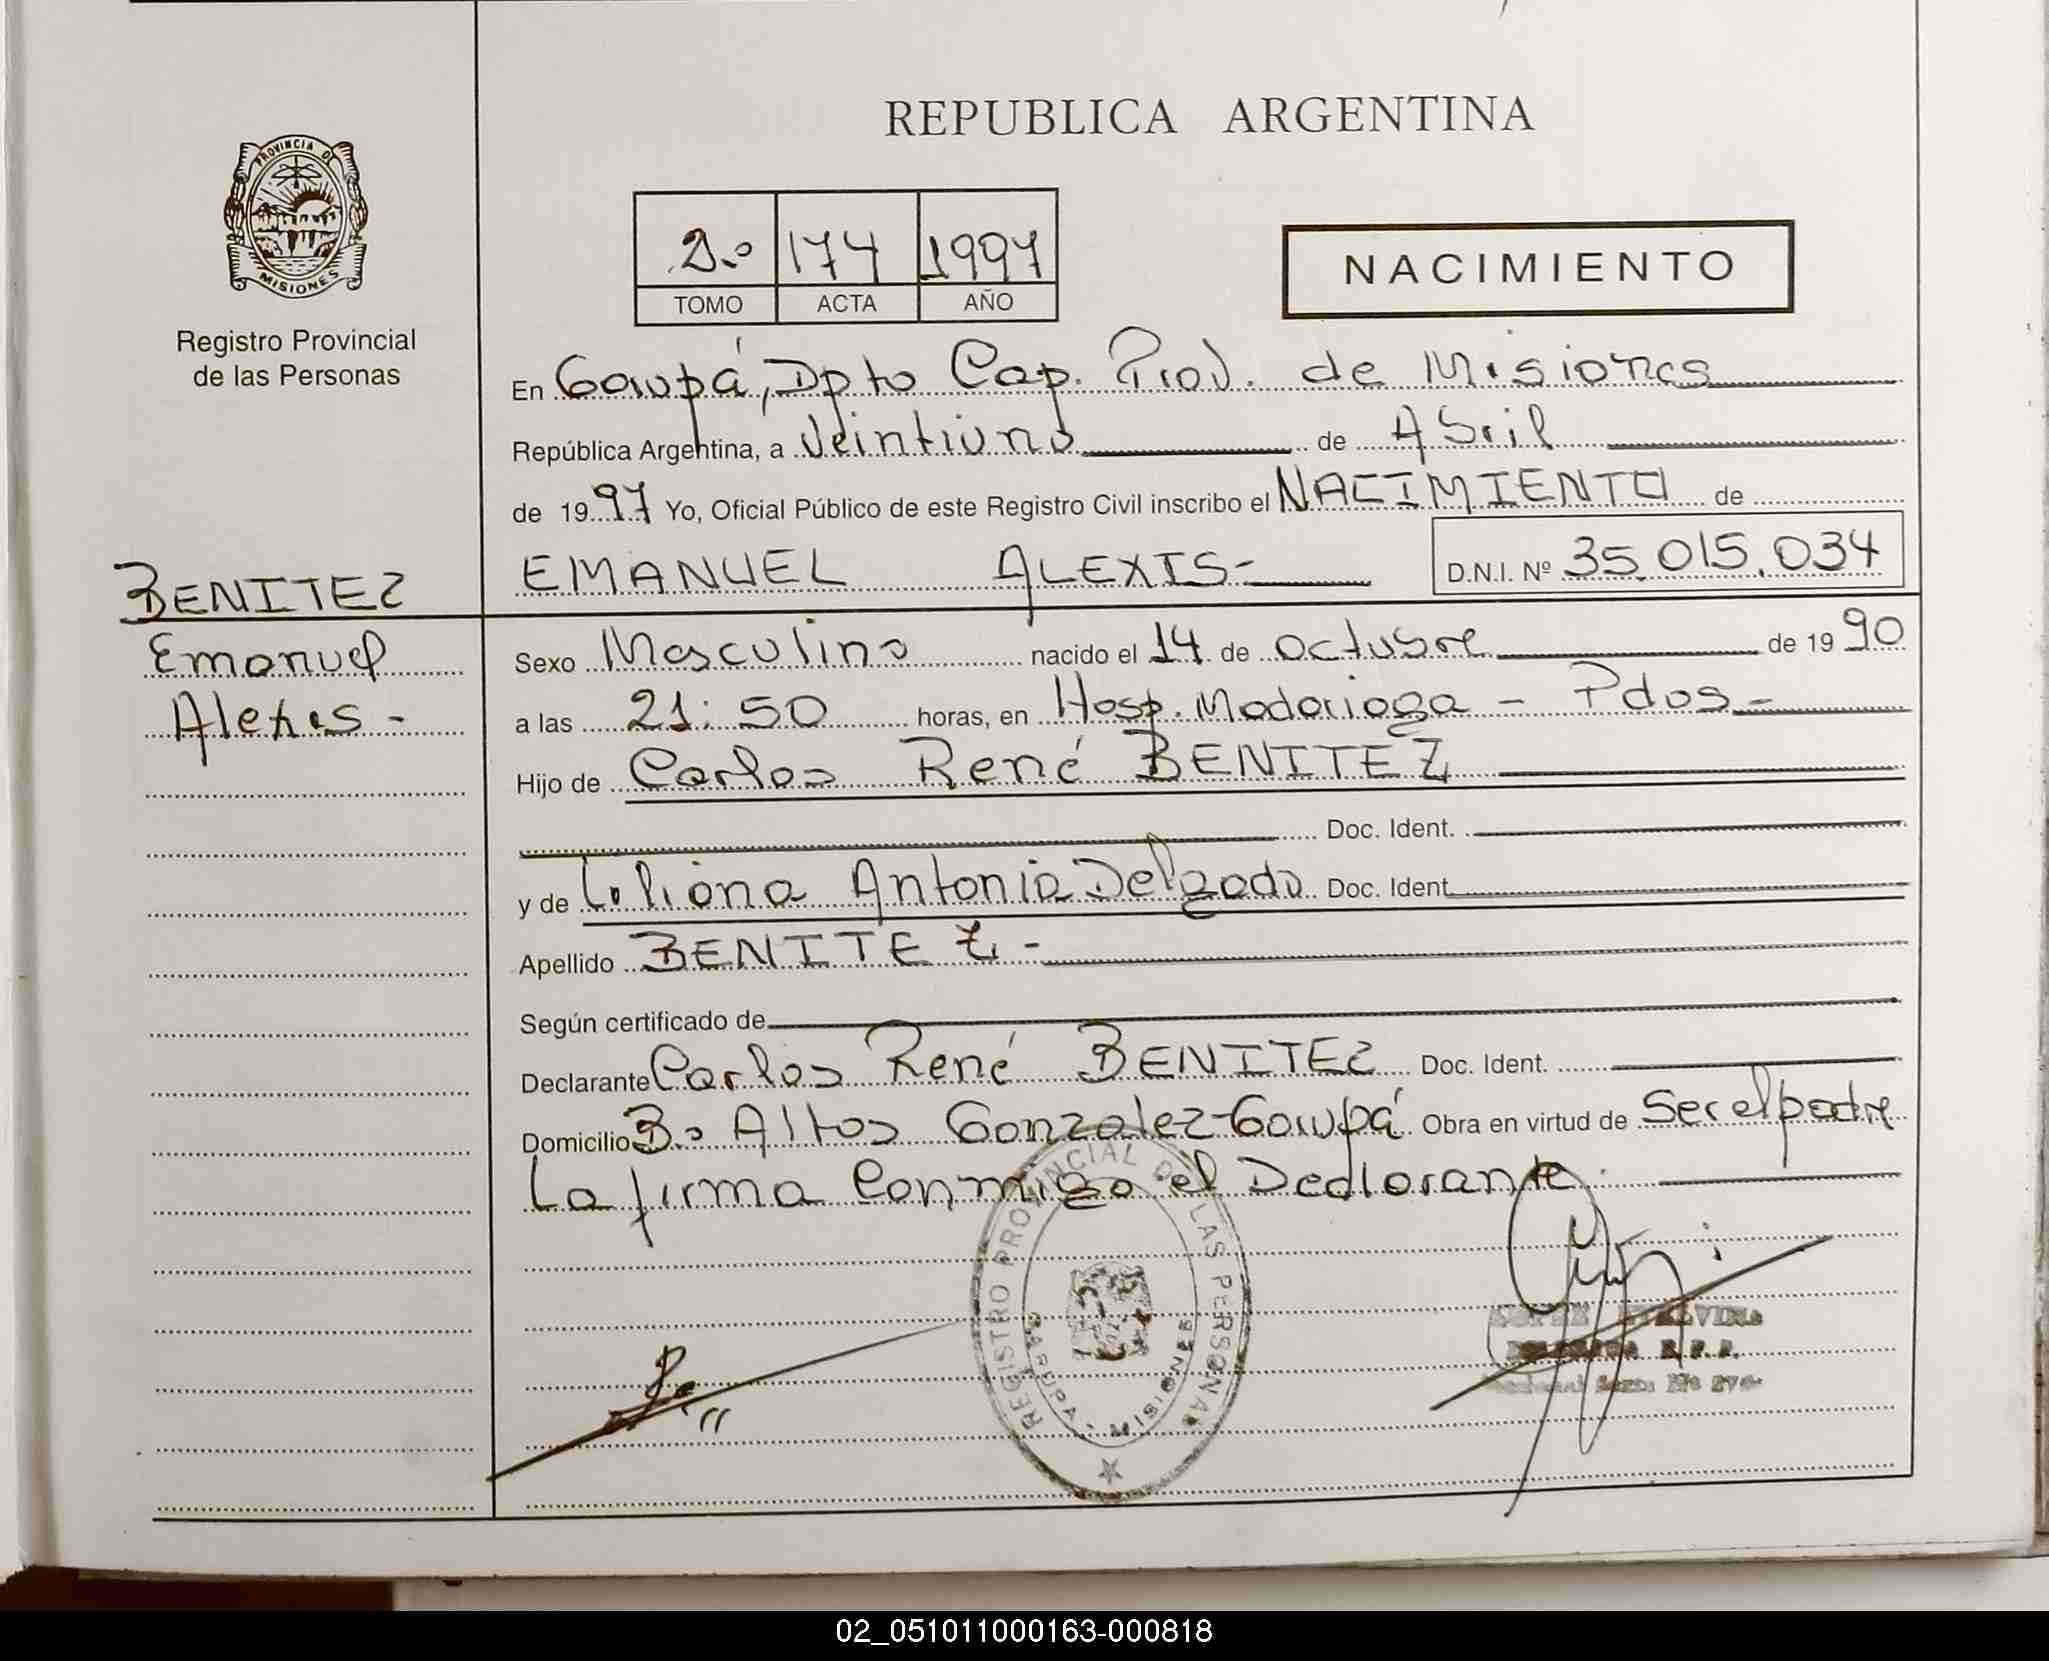 REPUBLICA ARGENTINA
PROVINCIA DE
MISIONES
Registro Provincial
de las Personas
2.º 174 1997
TOMO ACTA AÑO
NACIMIENTO
En Garupá, Dpto Cap. Prov. de Misiones
República Argentina, a Veintiuno de Abril
de 1997 Yo, Oficial Público de este Registro Civil inscribo el NACIMIENTO de
EMANUEL ALEXIS- D.N.I. Nº 35.015.034
BENITEZ
Emanuel
Alexis -
Sexo Masculino nacido el 14 de octubre de 1990
a las 21:50 horas, en Hosp. Madariaga - Pdas -
Hijo de Carlos René BENITEZ
Doc. Ident.
y de Liliana Antonia Delgado Doc. Ident
Apellido BENITEZ -
Según certificado de
Declarante Carlos René BENITEZ Doc. Ident.
Domicilio B.º Altos Gonzalez-Garupá Obra en virtud de Ser el padre
La firma Conmigo el Declarante.
REGISTRO PROVINCIAL DE LAS PERSONAS
GARUPA - MISIONES
02_051011000163-000818